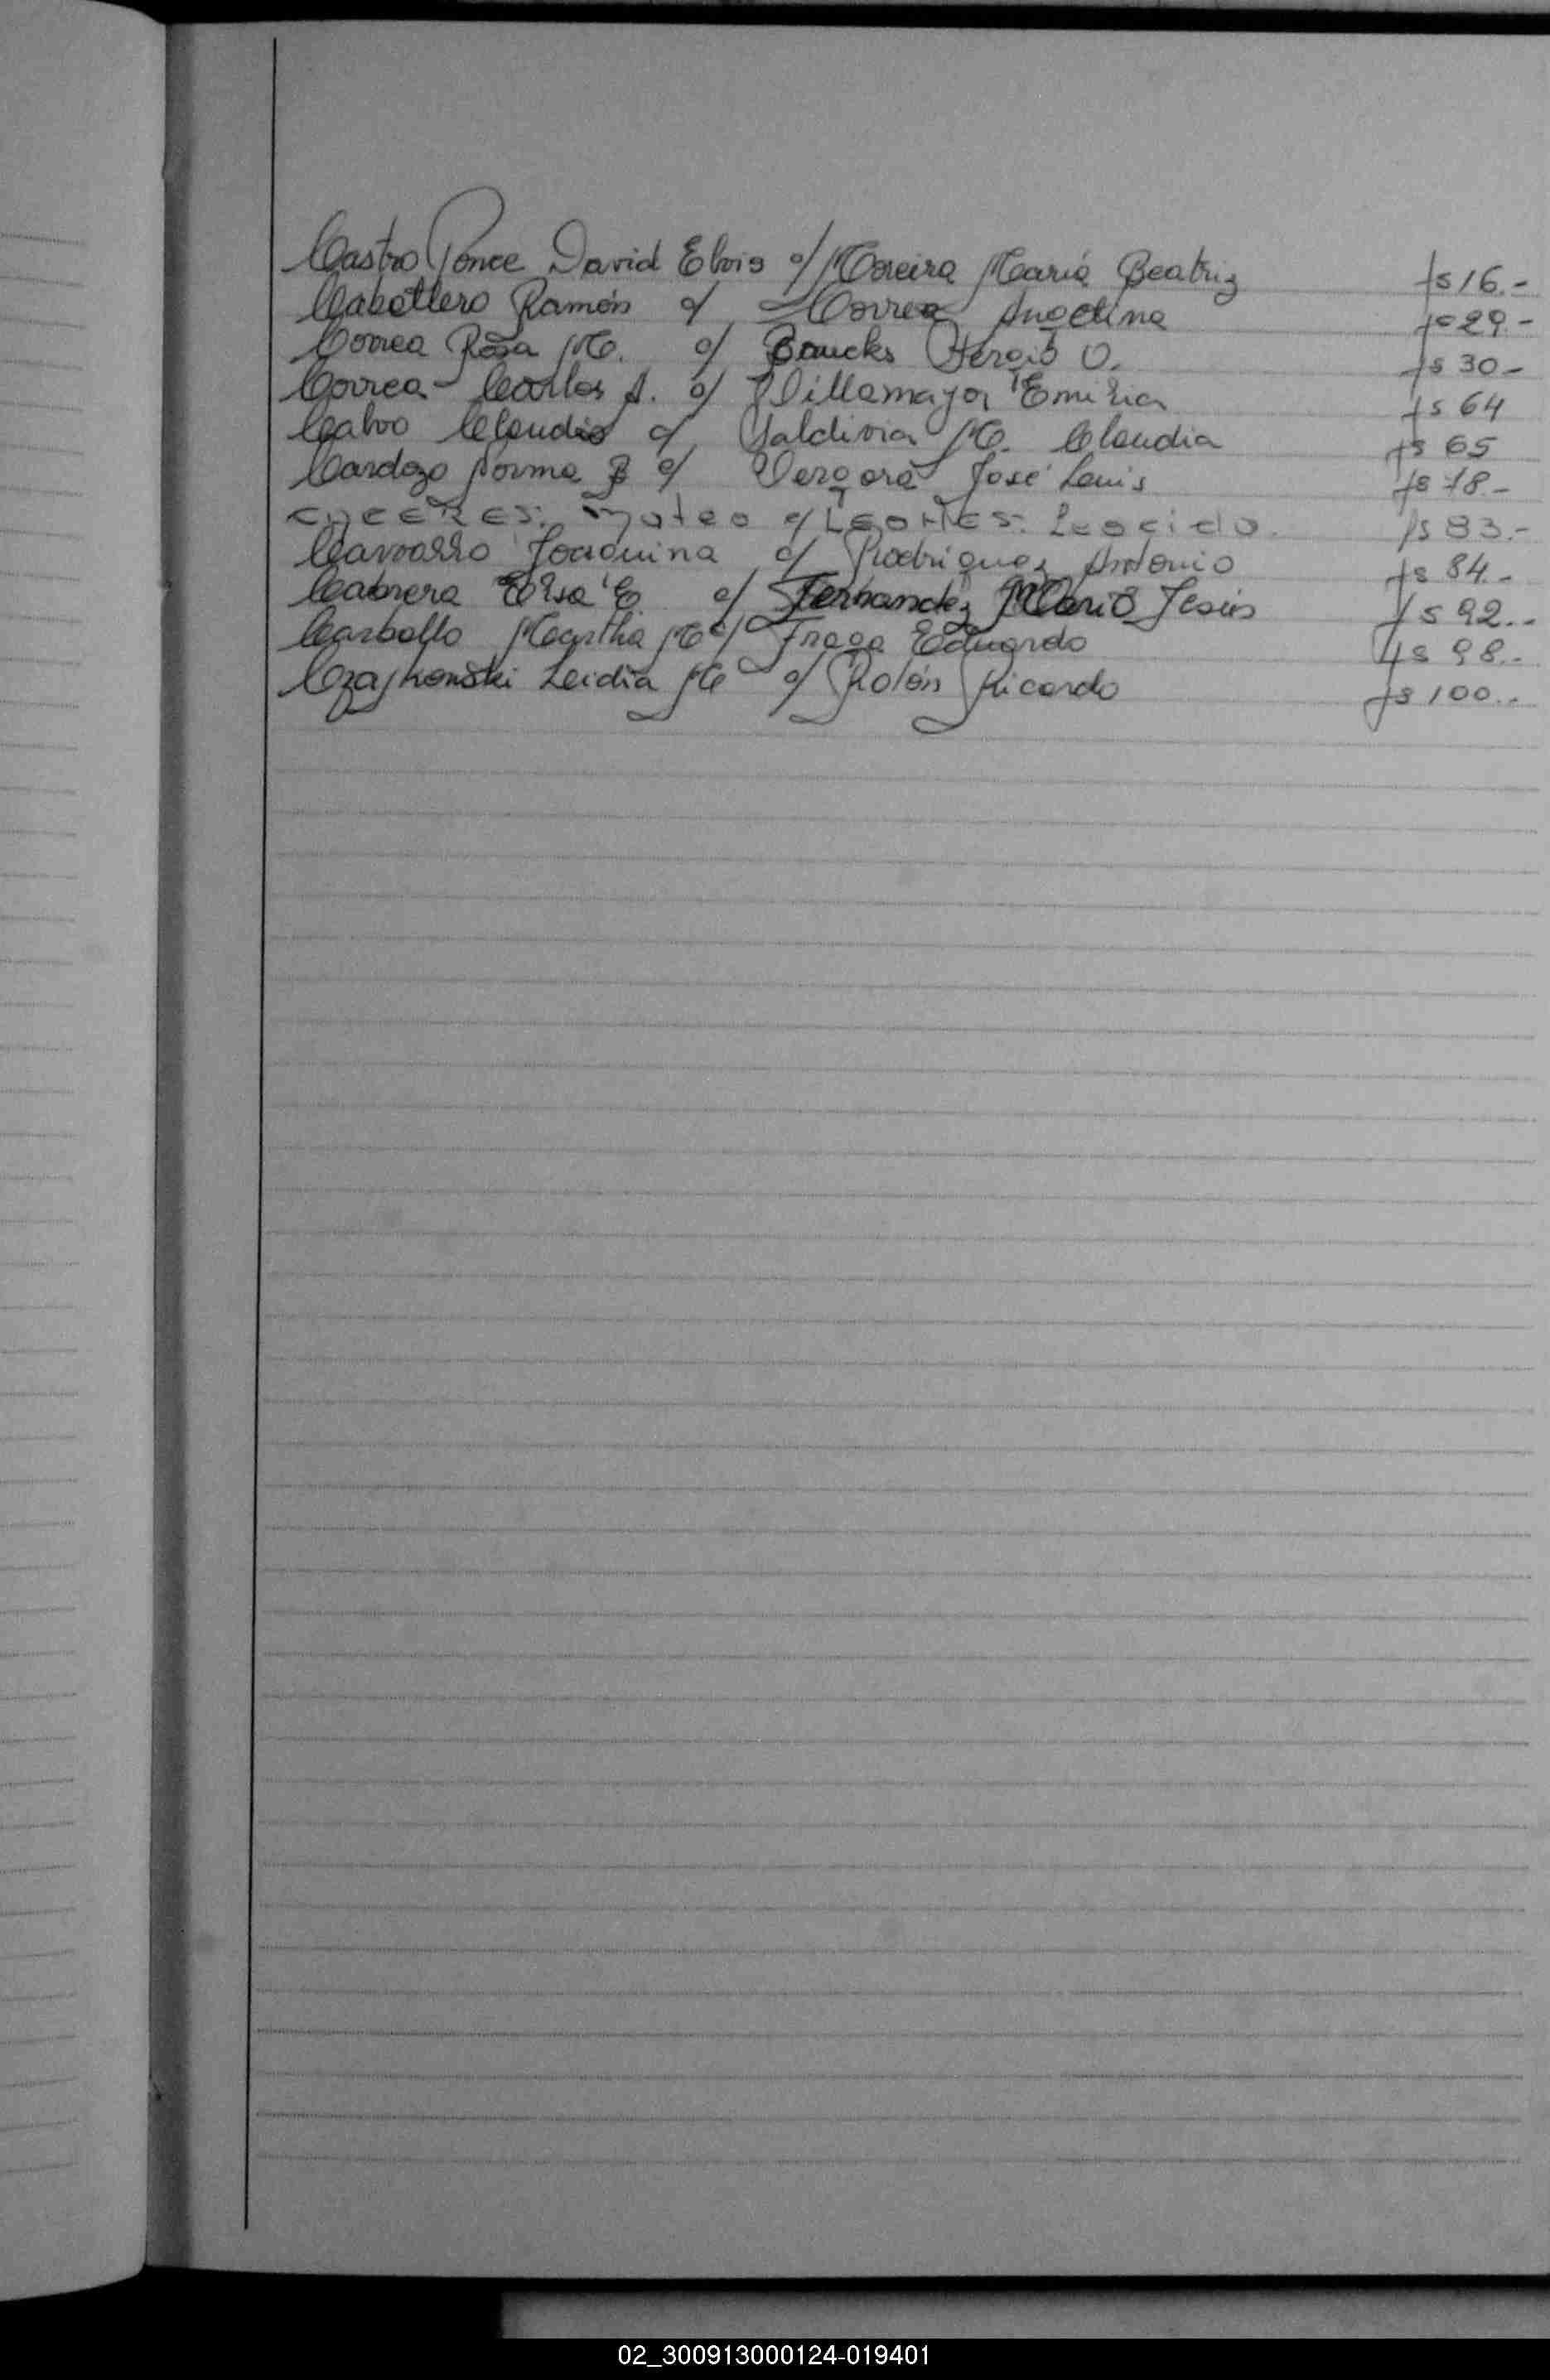 Castro Ponce David Elvis c/ Moreira María Beatriz fs 16.-
Caballero Ramón c/ Correa Angelina fs 29.-
Correa Rosa M. c/ Baucks Sergio O. fs 30.-
Correa Carlos A. c/ Villamayor Emilia fs 64
Calvo Claudio c/ Saldivia M. Claudia fs 65
Cardozo Norma B c/ Vergara José Luis fs 78.-
CACERES: Mateo c/ Leocido. fs 83.-
Joaquina c/ Rodriguez Antonio fs 84.-
Cabrera Elsa E. c/ Fernandez Mario Jesús fs 92.-
Carballo Martha M c/ Fraga Eduardo fs 98.-
Czajkowski Leidia M c/ Rolón Ricardo fs 100.-
02_300913000124-019401